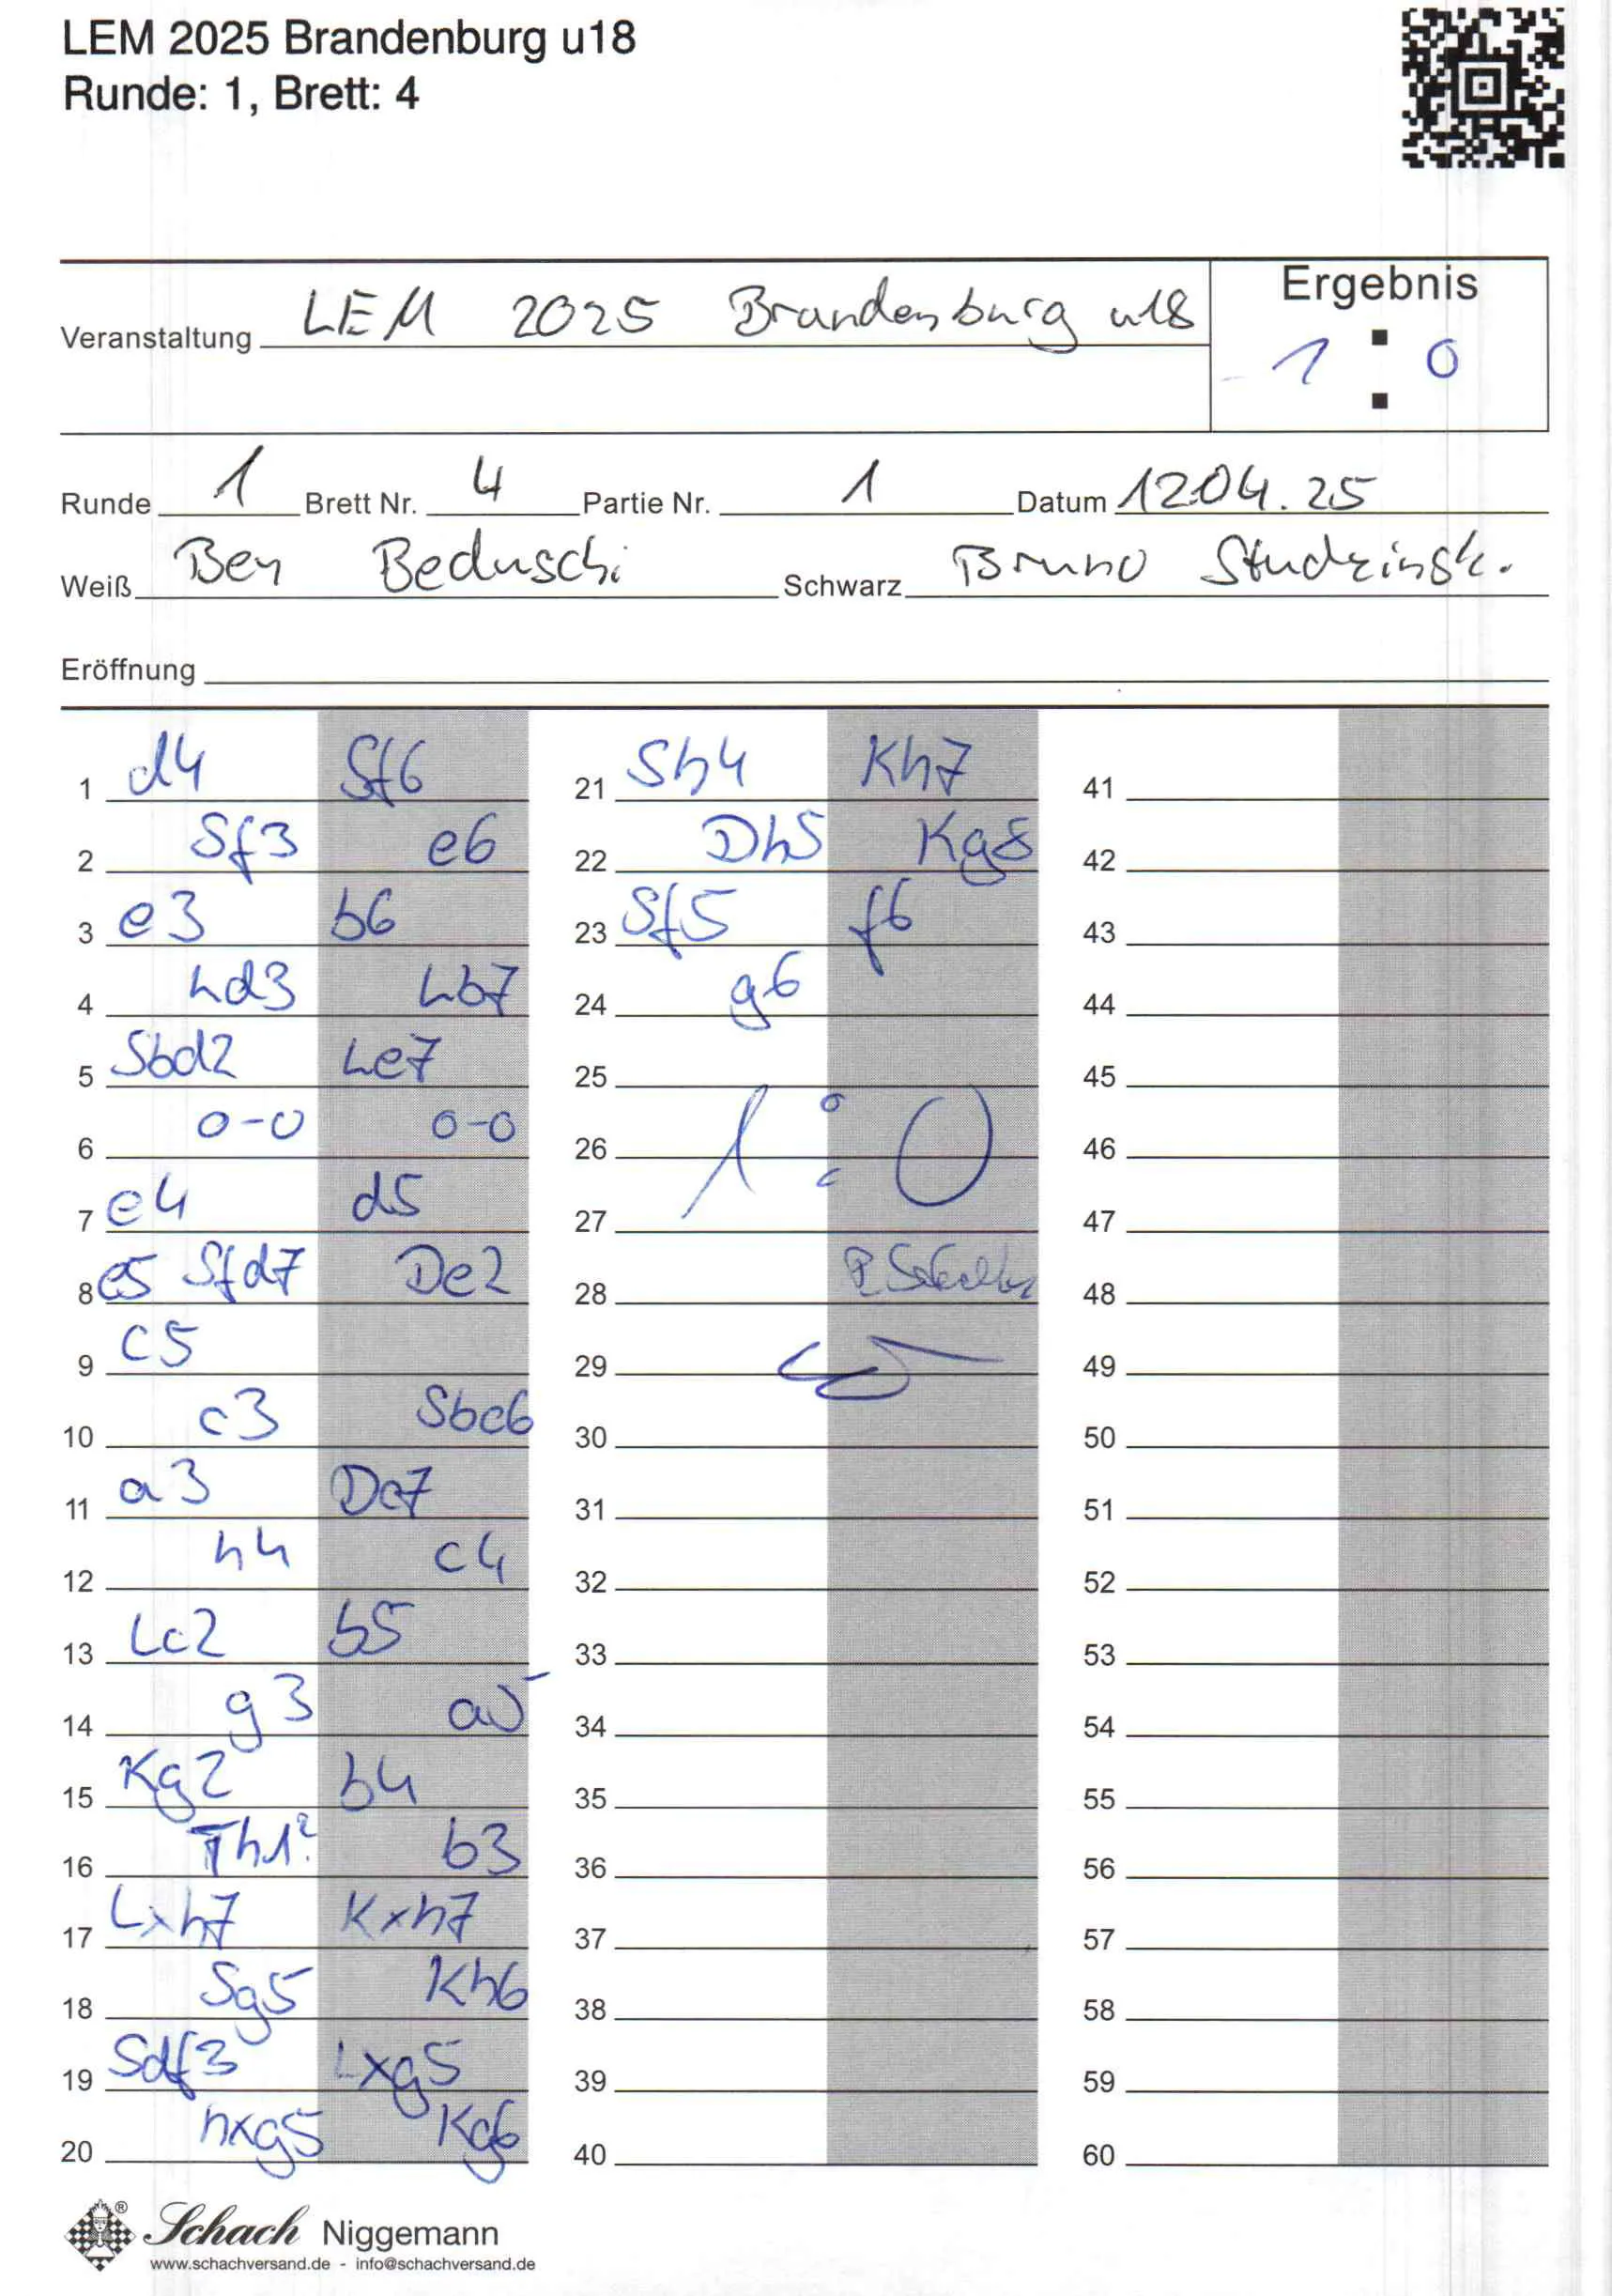 LEM 2025 Brandenburg u18
Runde: 1, Brett: 4
Ergebnis
Veranstaltung LEM 2025 Brandenburg u18
1 : 0
Runde 1 Brett Nr. 4 Partie Nr. 1 Datum 1204.25
Weiß Ben Beduschi Schwarz Bruno Studzinsk.
Eröffnung
1 d4 Sf6 21 Sh4 Kh7 41
2 Sf3 e6 22 Dh5 Kg8 42
3 e3 b6 23 Sf5 f6 43
4 Ld3 Lb7 24 g6 44
5 Sbd2 Le7 25 45
6 0-0 0-0 26 1:0 46
7 e4 d5 27 47
8 e5 Sfd7 De2 28 48
9 c5 29 49
10 c3 Sbc6 30 50
11 a3 Dc7 31 51
12 h4 c4 32 52
13 Lc2 b5 33 53
14 g3 a5 34 54
15 Kg2 b4 35 55
16 Th1? b3 36 56
17 Lxh7 Kxh7 37 57
18 Sg5 Kh6 38 58
19 Sdf3 Lxg5 39 59
20 hxg5 Kg6 40 60
Schach Niggemann
www.schachversand.de - info@schachversand.de